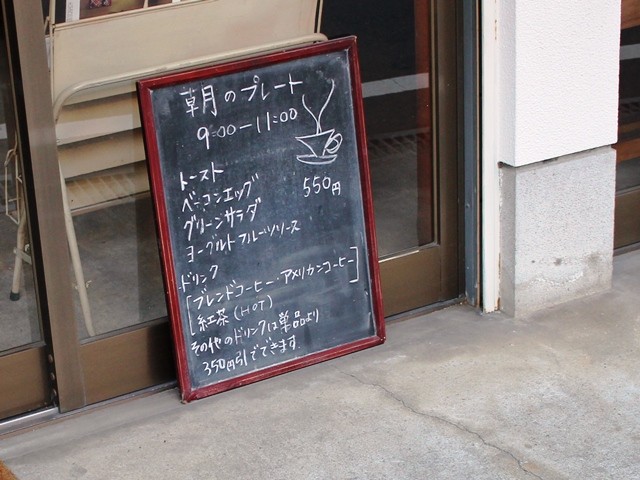 草月のプレート
9:00－11:00
トースト
ベーコンエッグ
550円
グリーンサラダ
ヨーグルトフルーツソース
ドリンク
[ブレンドコーヒー・アメリカンコーヒー]
[紅茶(HOT)
その他のドリンクは単品より
350円引でできます。